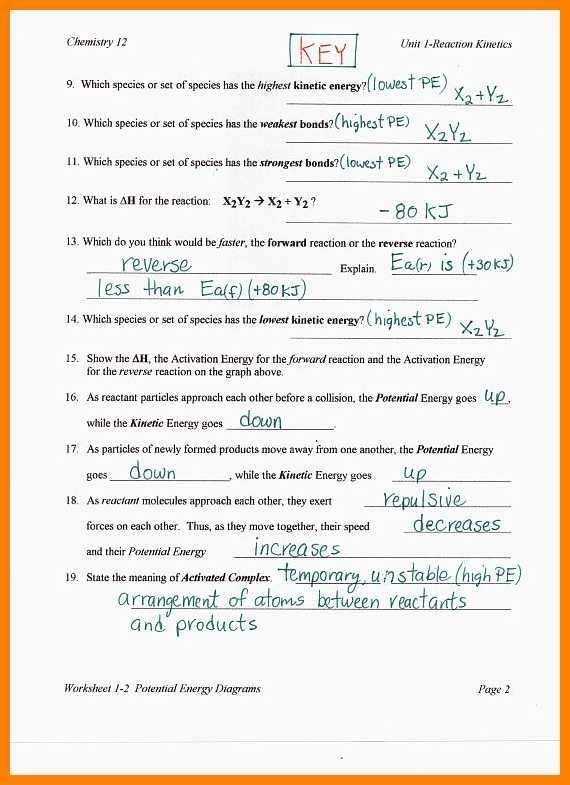 Chemistry 12 KEY Unit 1-Reaction Kinetics
9. Which species or set of species has the highest kinetic energy? (lowest PE) X2 + Y2
10. Which species or set of species has the weakest bonds? (highest PE) X2Y2
11. Which species or set of species has the strongest bonds? (lowest PE) X2 + Y2
12. What is ΔH for the reaction: X2Y2 → X2 + Y2 ? - 80 KJ
13. Which do you think would be faster, the forward reaction or the reverse reaction?
reverse Explain. Ea(r) is (+30KJ)
less than Ea(f) (+80KJ)
14. Which species or set of species has the lowest kinetic energy? (highest PE) X2Y2
15. Show the ΔH, the Activation Energy for the forward reaction and the Activation Energy
for the reverse reaction on the graph above.
16. As reactant particles approach each other before a collision, the Potential Energy goes up,
while the Kinetic Energy goes down.
17. As particles of newly formed products move away from one another, the Potential Energy
goes down, while the Kinetic Energy goes up
18. As reactant molecules approach each other, they exert repulsive
forces on each other. Thus, as they move together, their speed decreases
and their Potential Energy increases
19. State the meaning of Activated Complex. temporary, unstable (high PE)
arrangement of atoms between reactants
and products
Worksheet 1-2 Potential Energy Diagrams Page 2